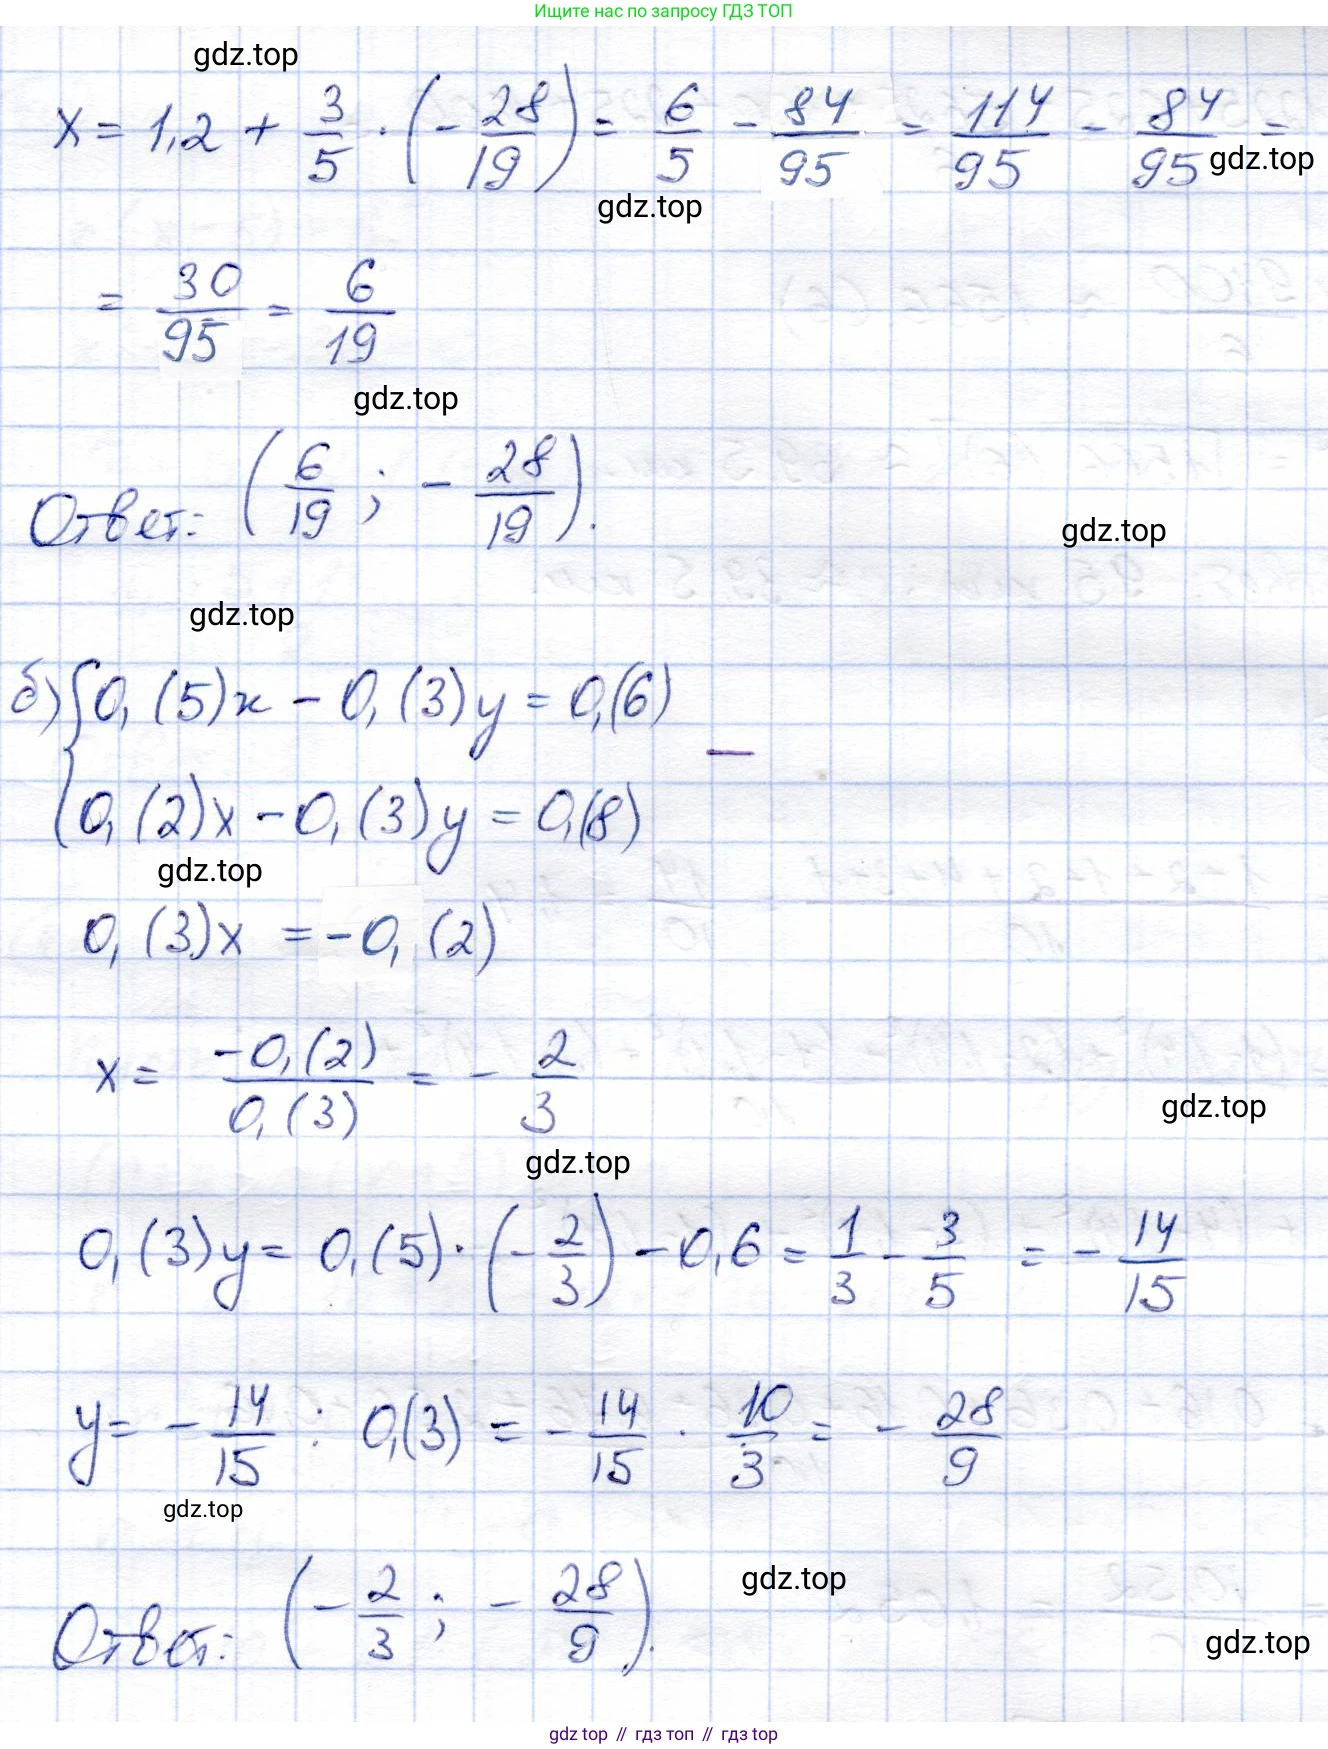 Ищите нас по запросу ГДЗ ТОП
gdz.top
x = 1,2 + 3/5 · (- 28/19) = 6/5 - 84/95 = 114/95 - 84/95 =
gdz.top
gdz.top
= 30/95 = 6/19
gdz.top
Ответ: (6/19; - 28/19).
gdz.top
gdz.top
б) { 0,(5)x - 0,(3)y = 0,(6)
0,(2)x - 0,(3)y = 0,(8)
—
gdz.top
0,(3)x = -0,(2)
x = -0,(2)/0,(3) = - 2/3
gdz.top
gdz.top
0,(3)y = 0,(5) · (- 2/3) - 0,6 = 1/3 - 3/5 = - 14/15
y = - 14/15 : 0,(3) = - 14/15 · 10/3 = - 28/9
gdz.top
gdz.top
Ответ: (- 2/3; - 28/9).
gdz.top
gdz top // гдз топ // gdz top